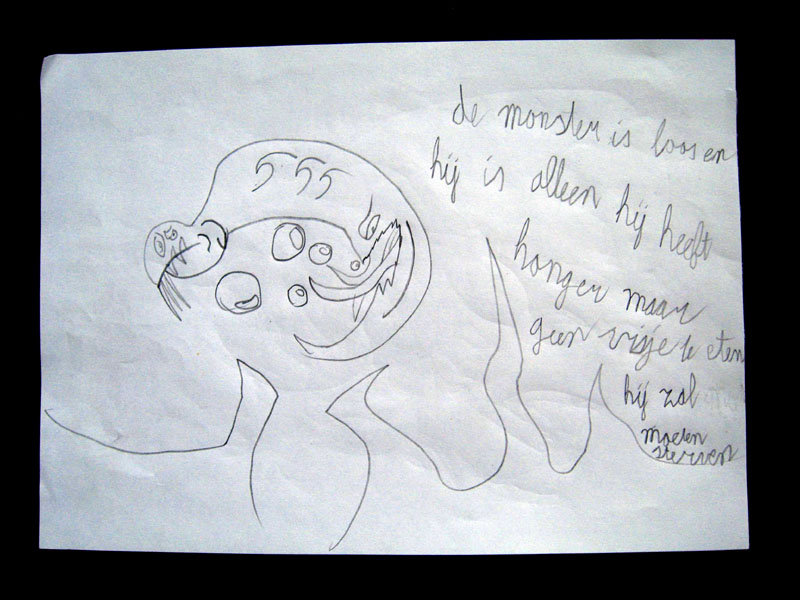 de monster is loos en
hij is alleen hij heeft
honger maar
geen visje te eten
hij zal
moeten
sterven